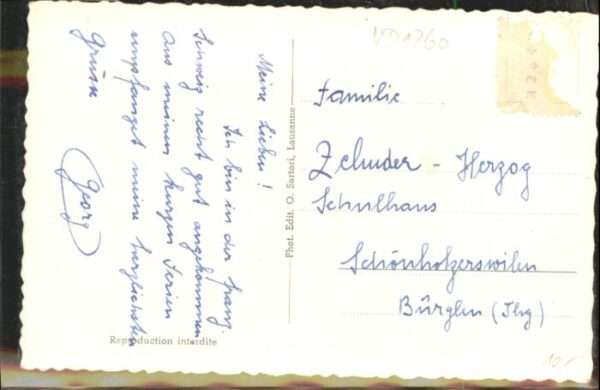 Meine Lieben!
Ich bin in der franz.
Schweiz recht gut angekommen
Aus meinen kurzen Ferien
empfanget meine herzlichsten
Grüsse
Georg
Phot. Edit. O. Sartori, Lausanne
Reproduction interdite
VD1260
Familie
Zehnder - Herzog
Schulhaus
Schönholzerswilen
Bürglen (Thg)